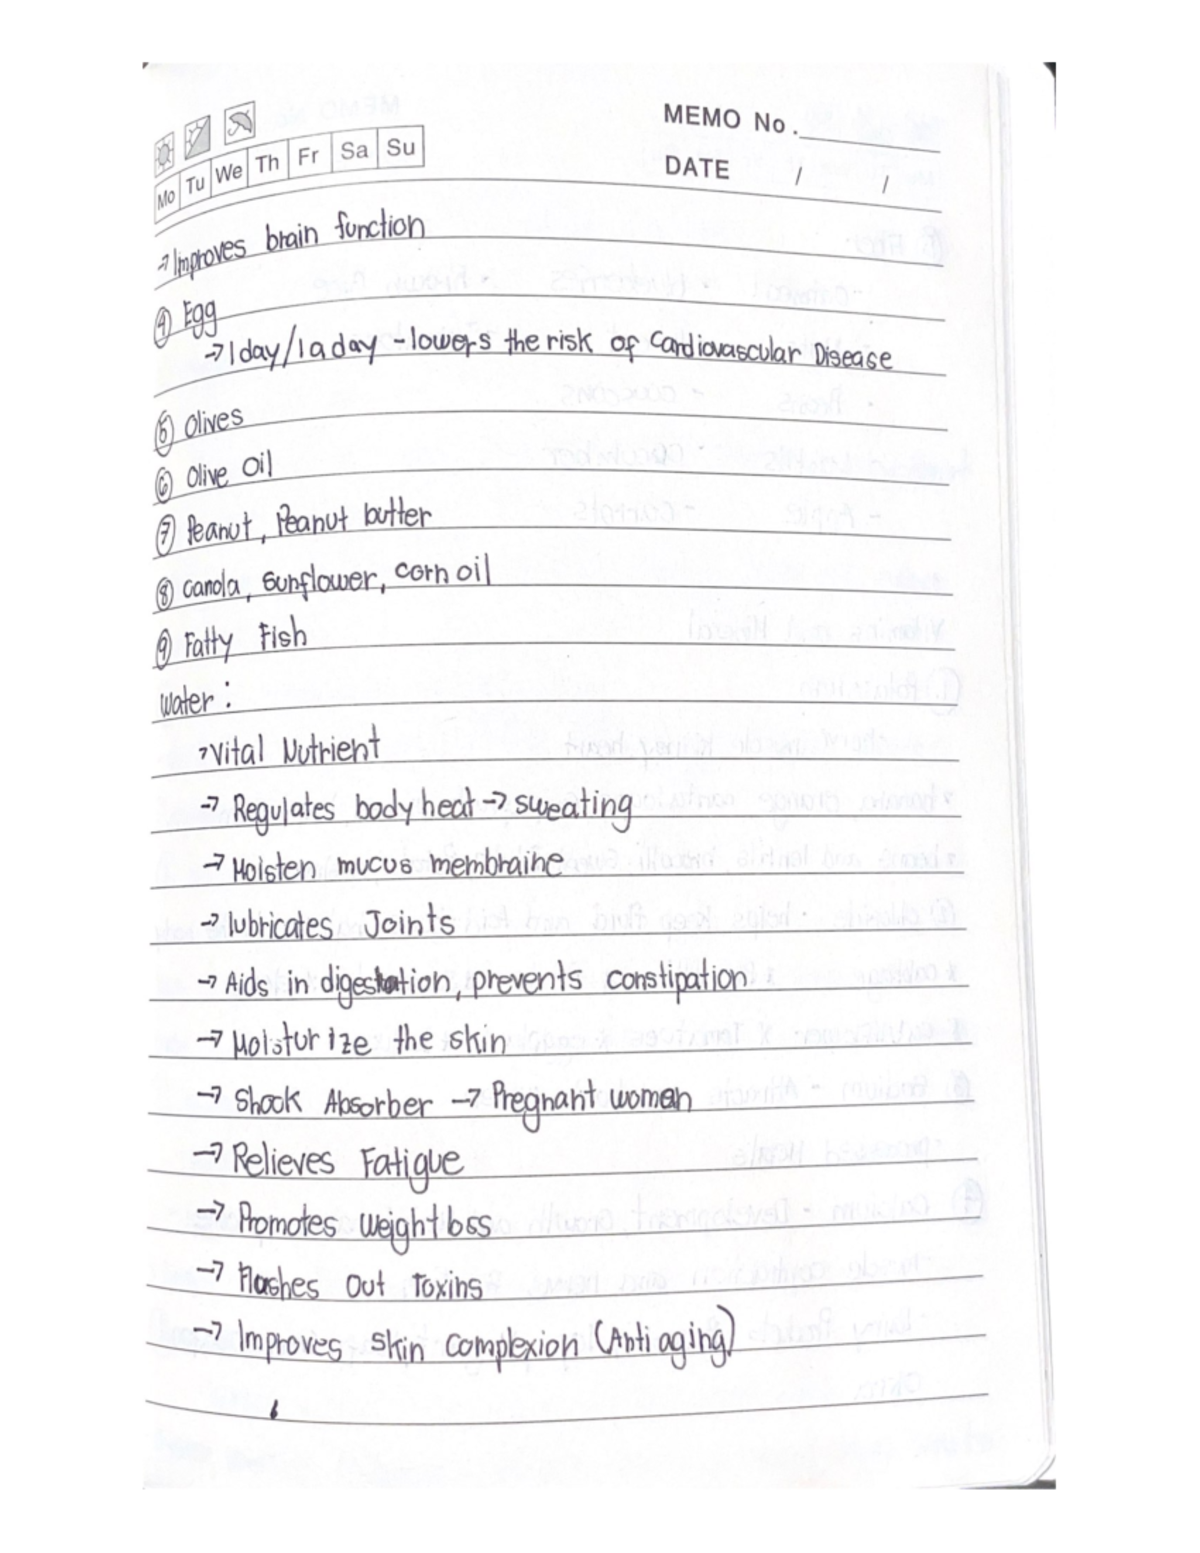 MEMO No.
Mo Tu We Th Fr Sa Su
DATE / /
→ Improves brain function
④ Egg
→ 1 day/1 a day - lowers the risk of Cardiovascular Disease
⑤ Olives
⑥ Olive Oil
⑦ Peanut, Peanut butter
⑧ canola, sunflower, corn oil
⑨ Fatty Fish
water:
→ Vital Nutrient
→ Regulates body heat → sweating
→ Moisten mucus membraine
→ lubricates Joints
→ Aids in digestation, prevents constipation
→ Moisturize the skin
→ Shock Absorber → Pregnant woman
→ Relieves Fatigue
→ Promotes weightloss
→ Flashes Out Toxins
→ Improves skin complexion (Anti aging)